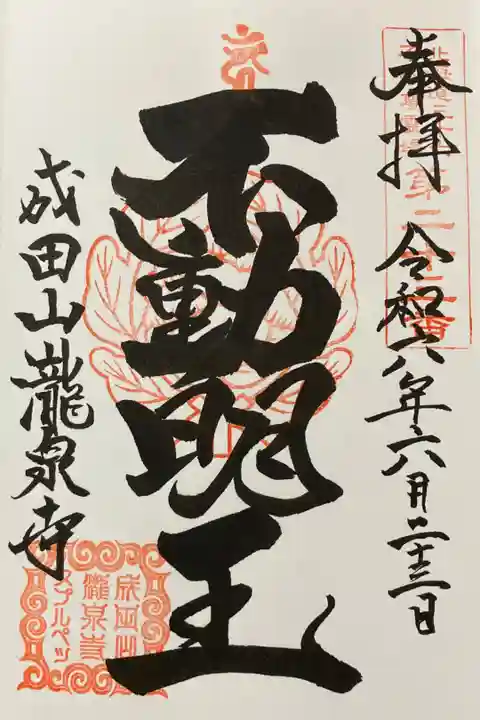 奉拝
令和六年六月二十三日
不動明王
成田山瀧泉寺
成田山
瀧泉寺
シブルベツ